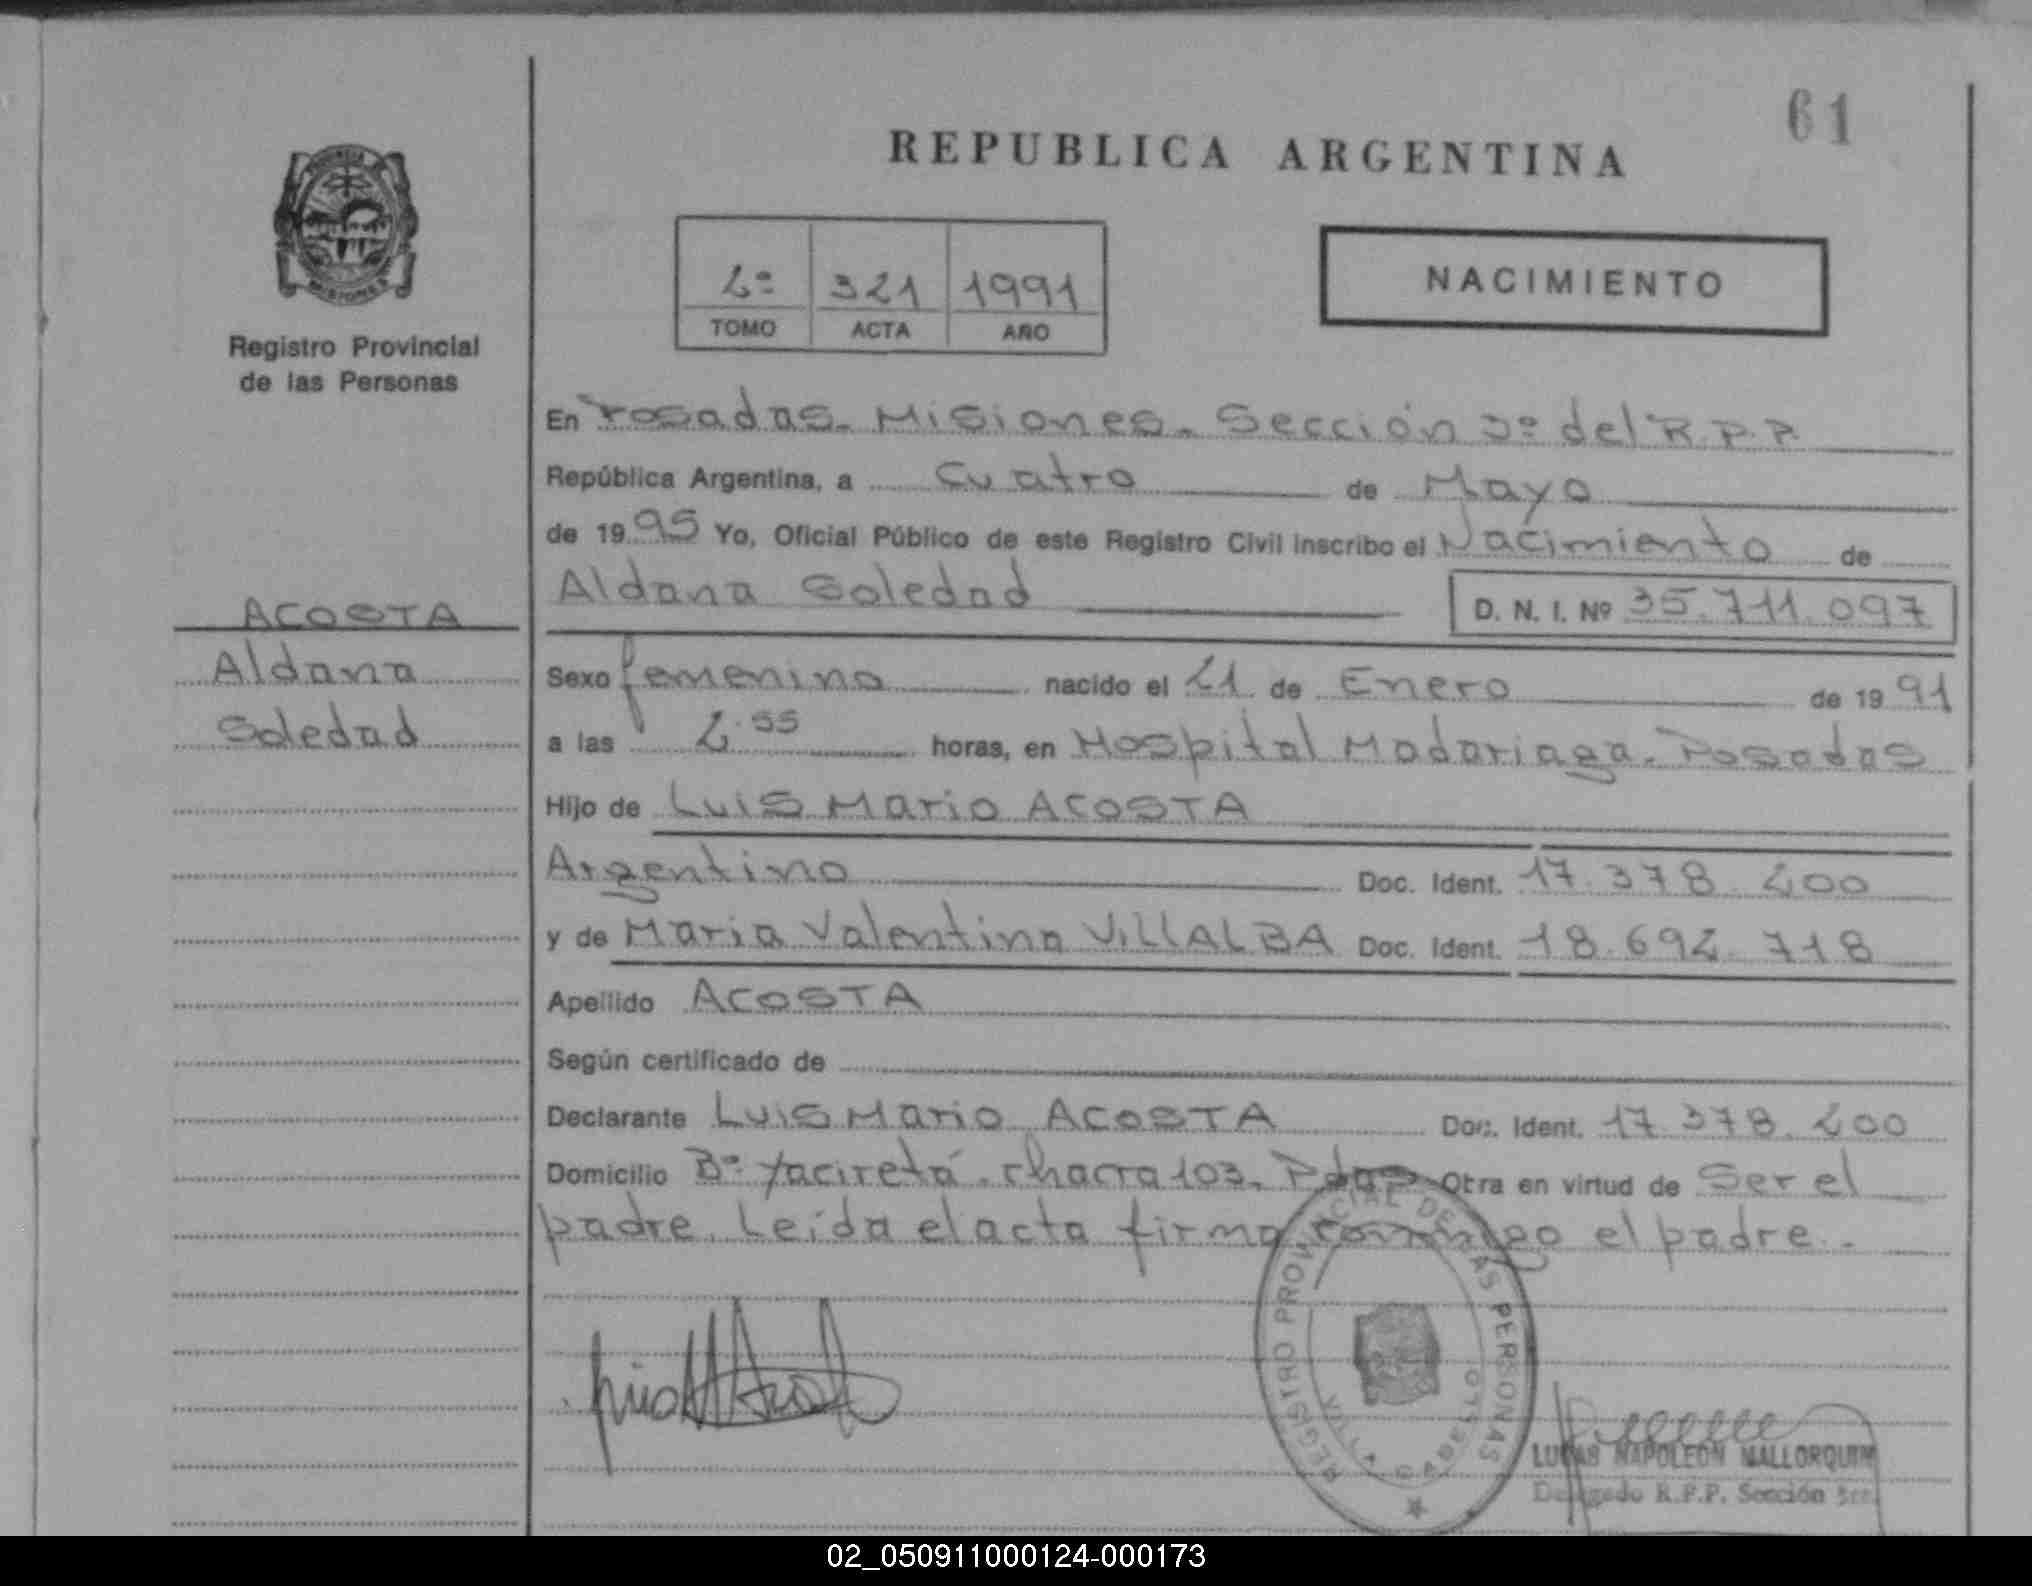 61
REPUBLICA ARGENTINA
MISIONES
Registro Provincial
de las Personas
2º 321 1991
TOMO ACTA AÑO
NACIMIENTO
En Posadas. Misiones. Sección 3º del R.P.P.
República Argentina, a Cuatro de Mayo
de 1995 Yo, Oficial Público de este Registro Civil inscribo el Nacimiento de
Aldana Soledad D. N. I. Nº 35.711.097
ACOSTA
Aldana
Soledad
Sexo femenino nacido el 21 de Enero de 1991
a las 2.55 horas, en Hospital Madariaga. Posadas
Hijo de Luis Mario ACOSTA
Argentino Doc. Ident. 17.378.200
y de Maria Valentina VillALBA Doc. Ident. 18.692.718
Apellido ACOSTA
Según certificado de
Declarante Luis Mario ACOSTA Doc. Ident. 17.378.200
Domicilio Bº Yaciretá. chacra 103. Pdas Obra en virtud de Ser el
padre. Leída el acta firma conmigo el padre.
REGISTRO PROVINCIAL DE LAS PERSONAS
VILLA CABELLO
LUCAS NAPOLEON MALLORQUIN
Delegado R.P.P. Sección 3ra.
02_050911000124-000173